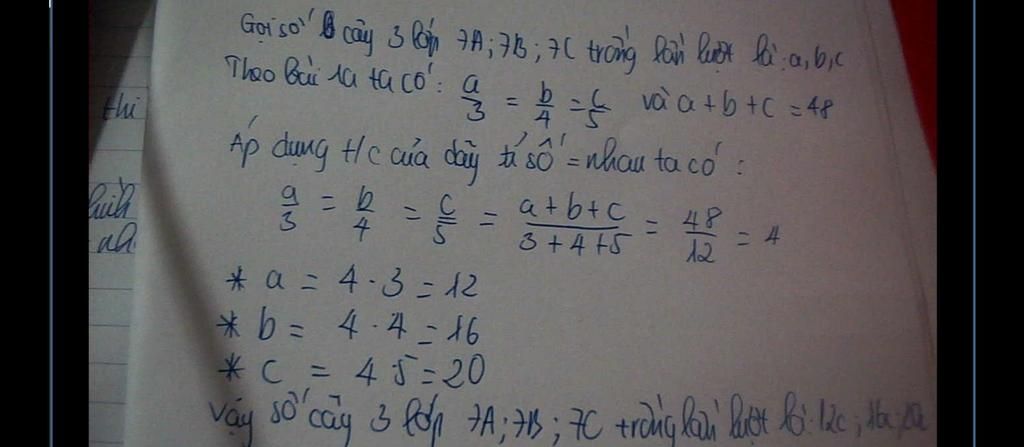 Gọi số cây 3 lớp 7A; 7B; 7C trồng lần lượt là: a, b, c
Theo bài ra ta có: a/3 = b/4 = c/5 và a + b + c = 48
Áp dụng t/c của dãy tỉ số = nhau ta có:
a/3 = b/4 = c/5 = (a + b + c)/(3 + 4 + 5) = 48/12 = 4
* a = 4 . 3 = 12
* b = 4 . 4 = 16
* c = 4 . 5 = 20
Vậy số cây 3 lớp 7A; 7B; 7C trồng lần lượt là: 12c;
thi